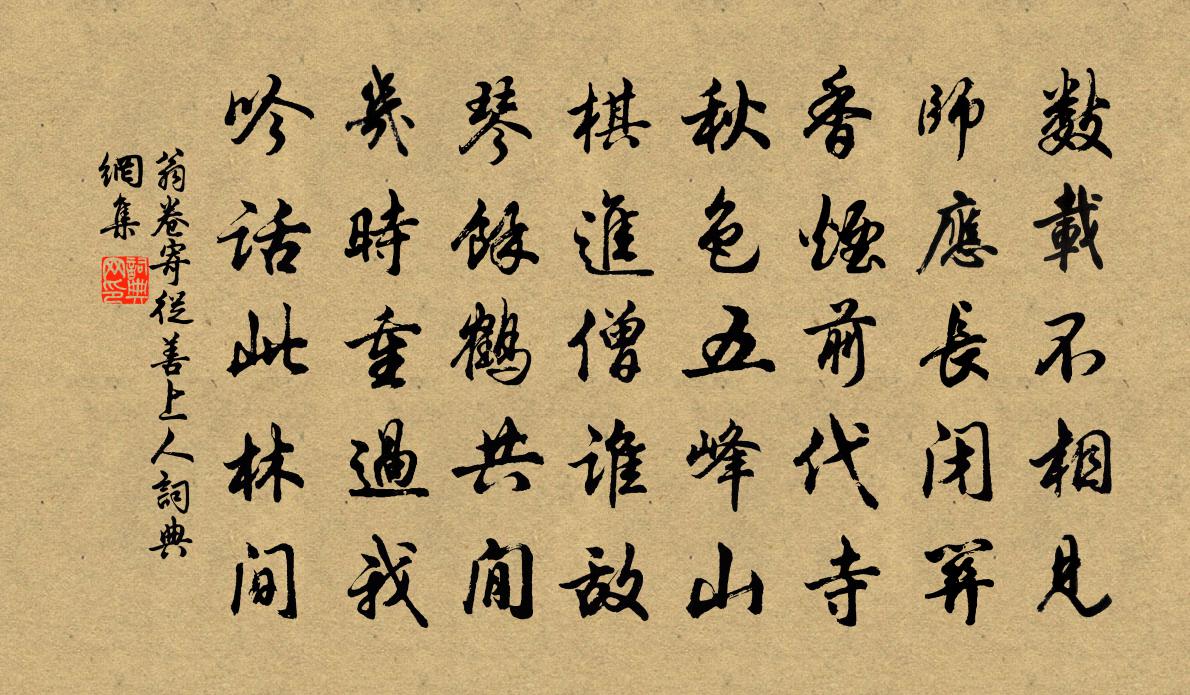 數載不相見
師應長閉關
香煙前代寺
秋色五峰山
棋進僧誰敵
琴餘鶴共閒
幾時重過我
吟話此林間
翁卷寄從善上人詞典
網集
詞典
网印